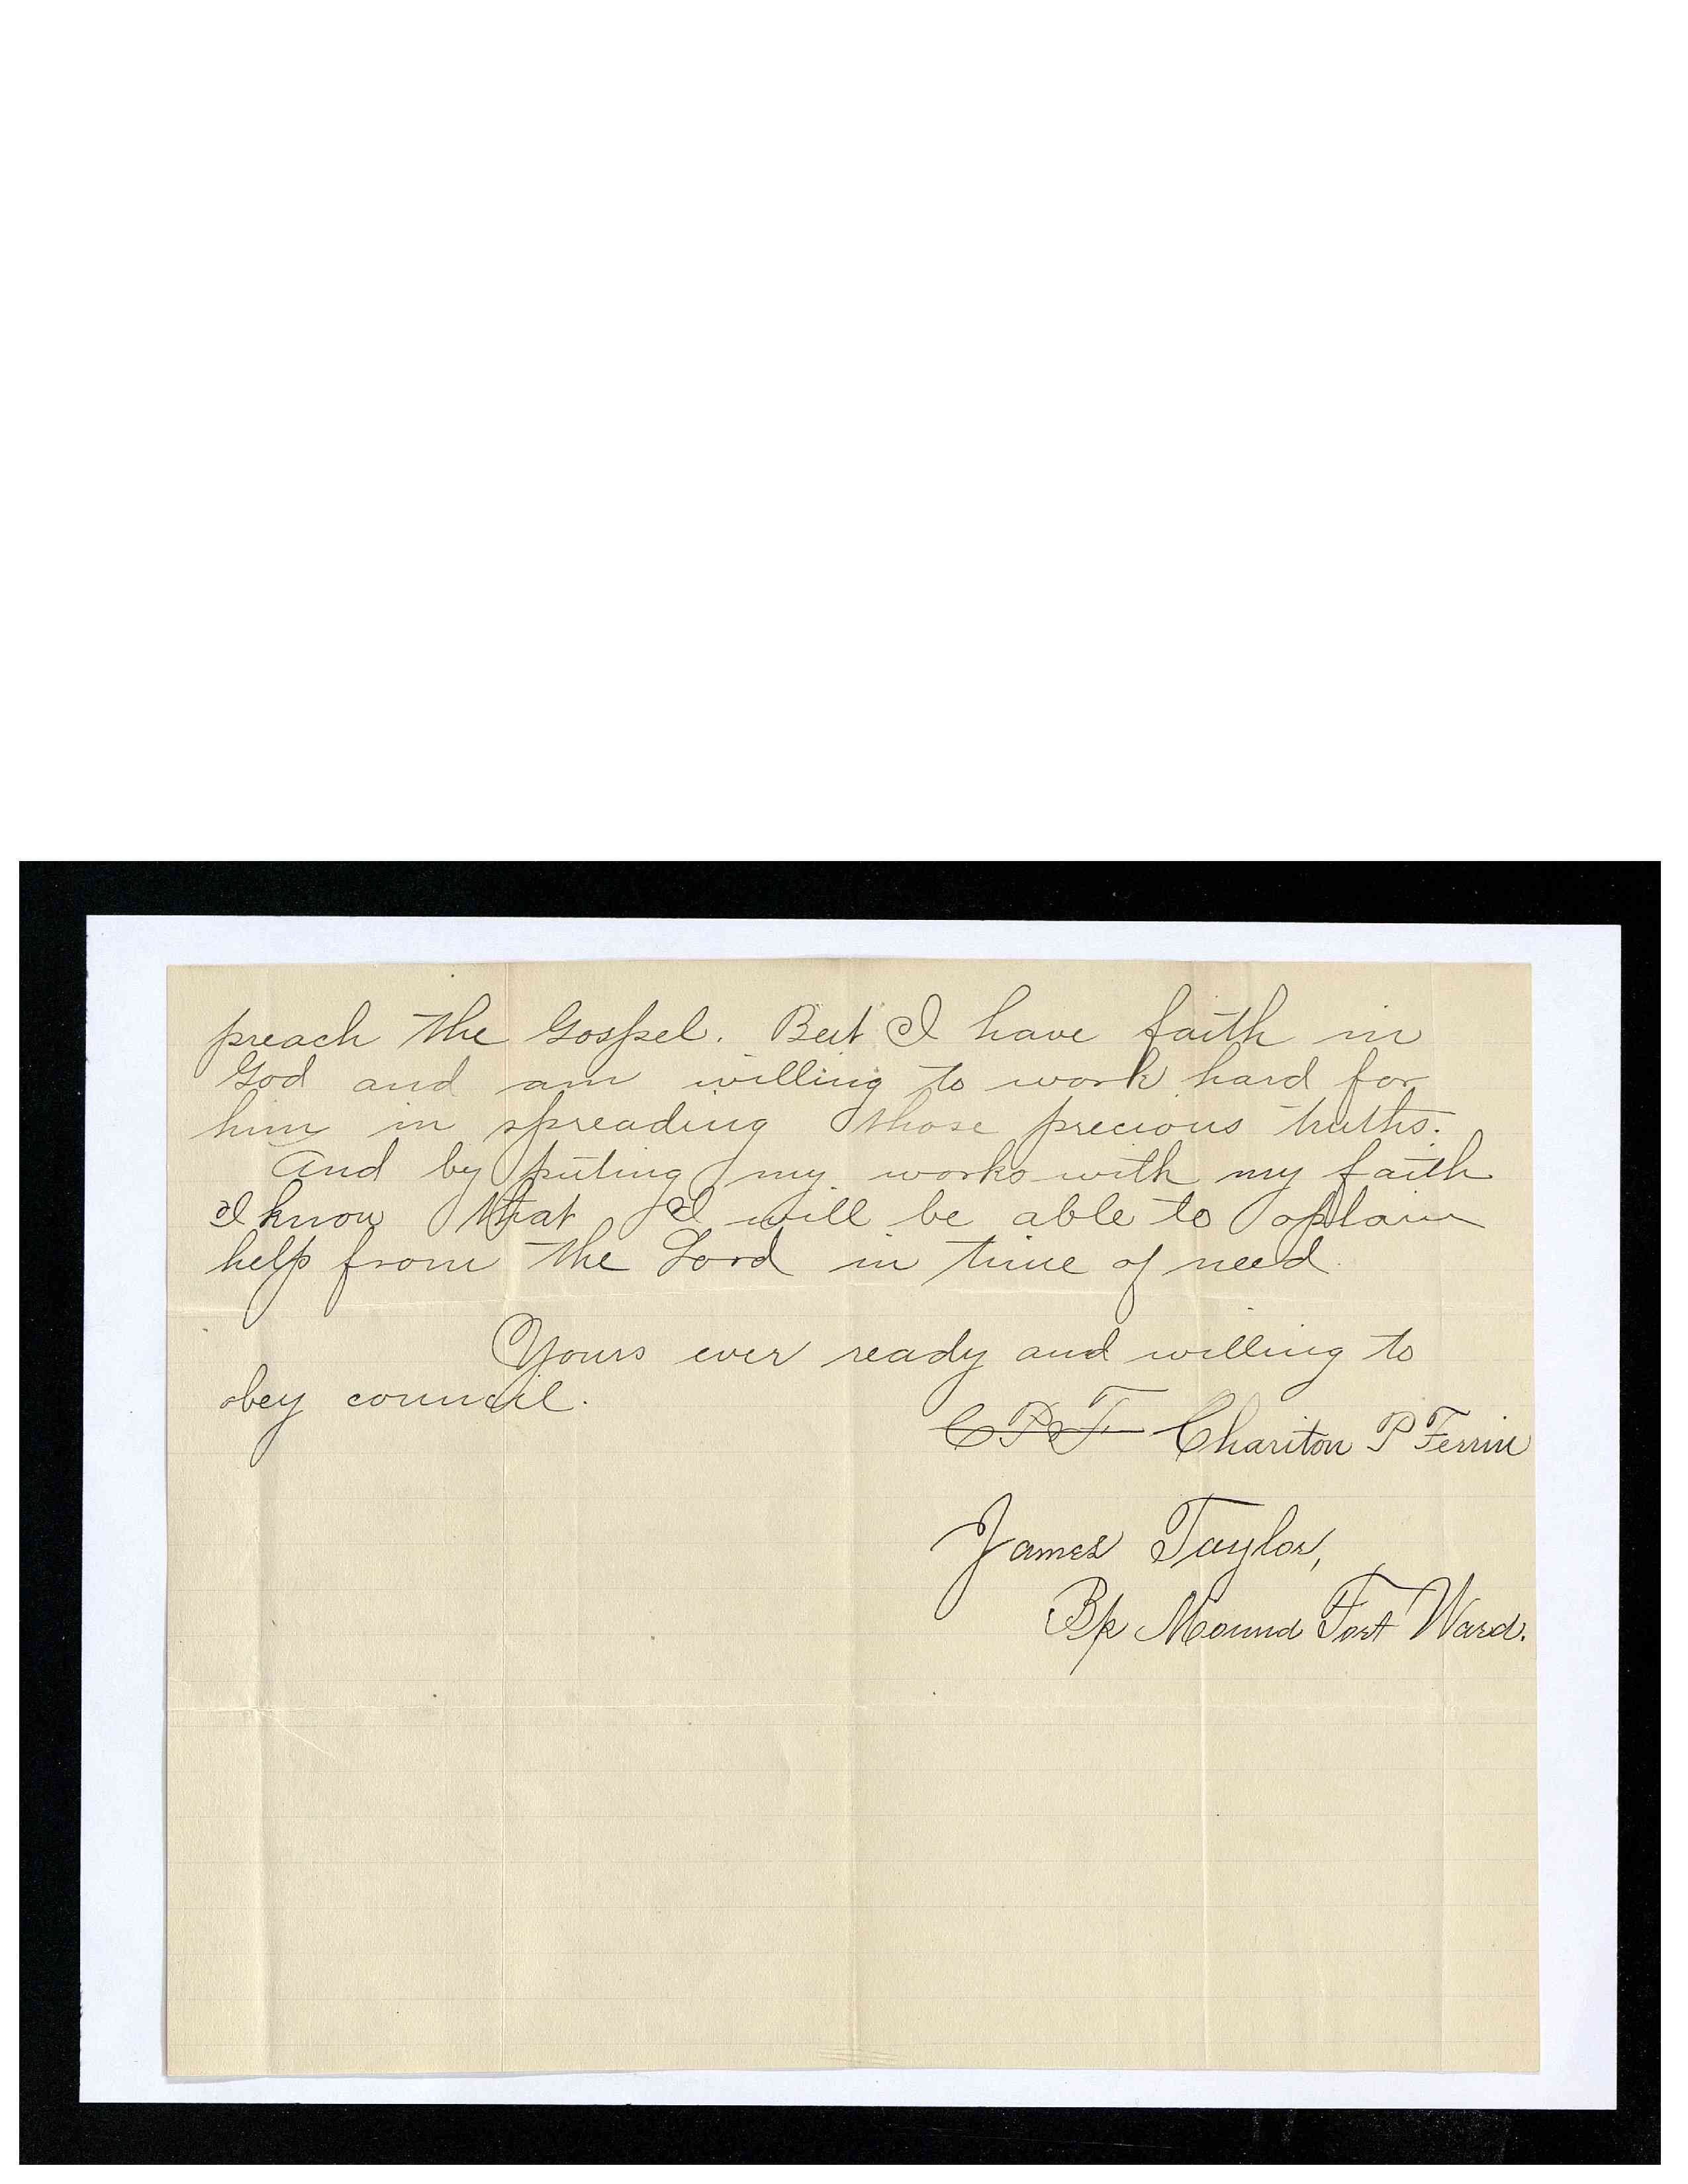 preach the Gospel. But I have faith in
God and am willing to work hard for
him in spreading those precious truths.
And by puting my works with my faith
I know that I will be able to optain
help from the Lord in time of need.
Yours ever ready and willing to
obey council.
C P F Chariton P Ferrin
James Taylor,
Bp Mound Fort Ward.